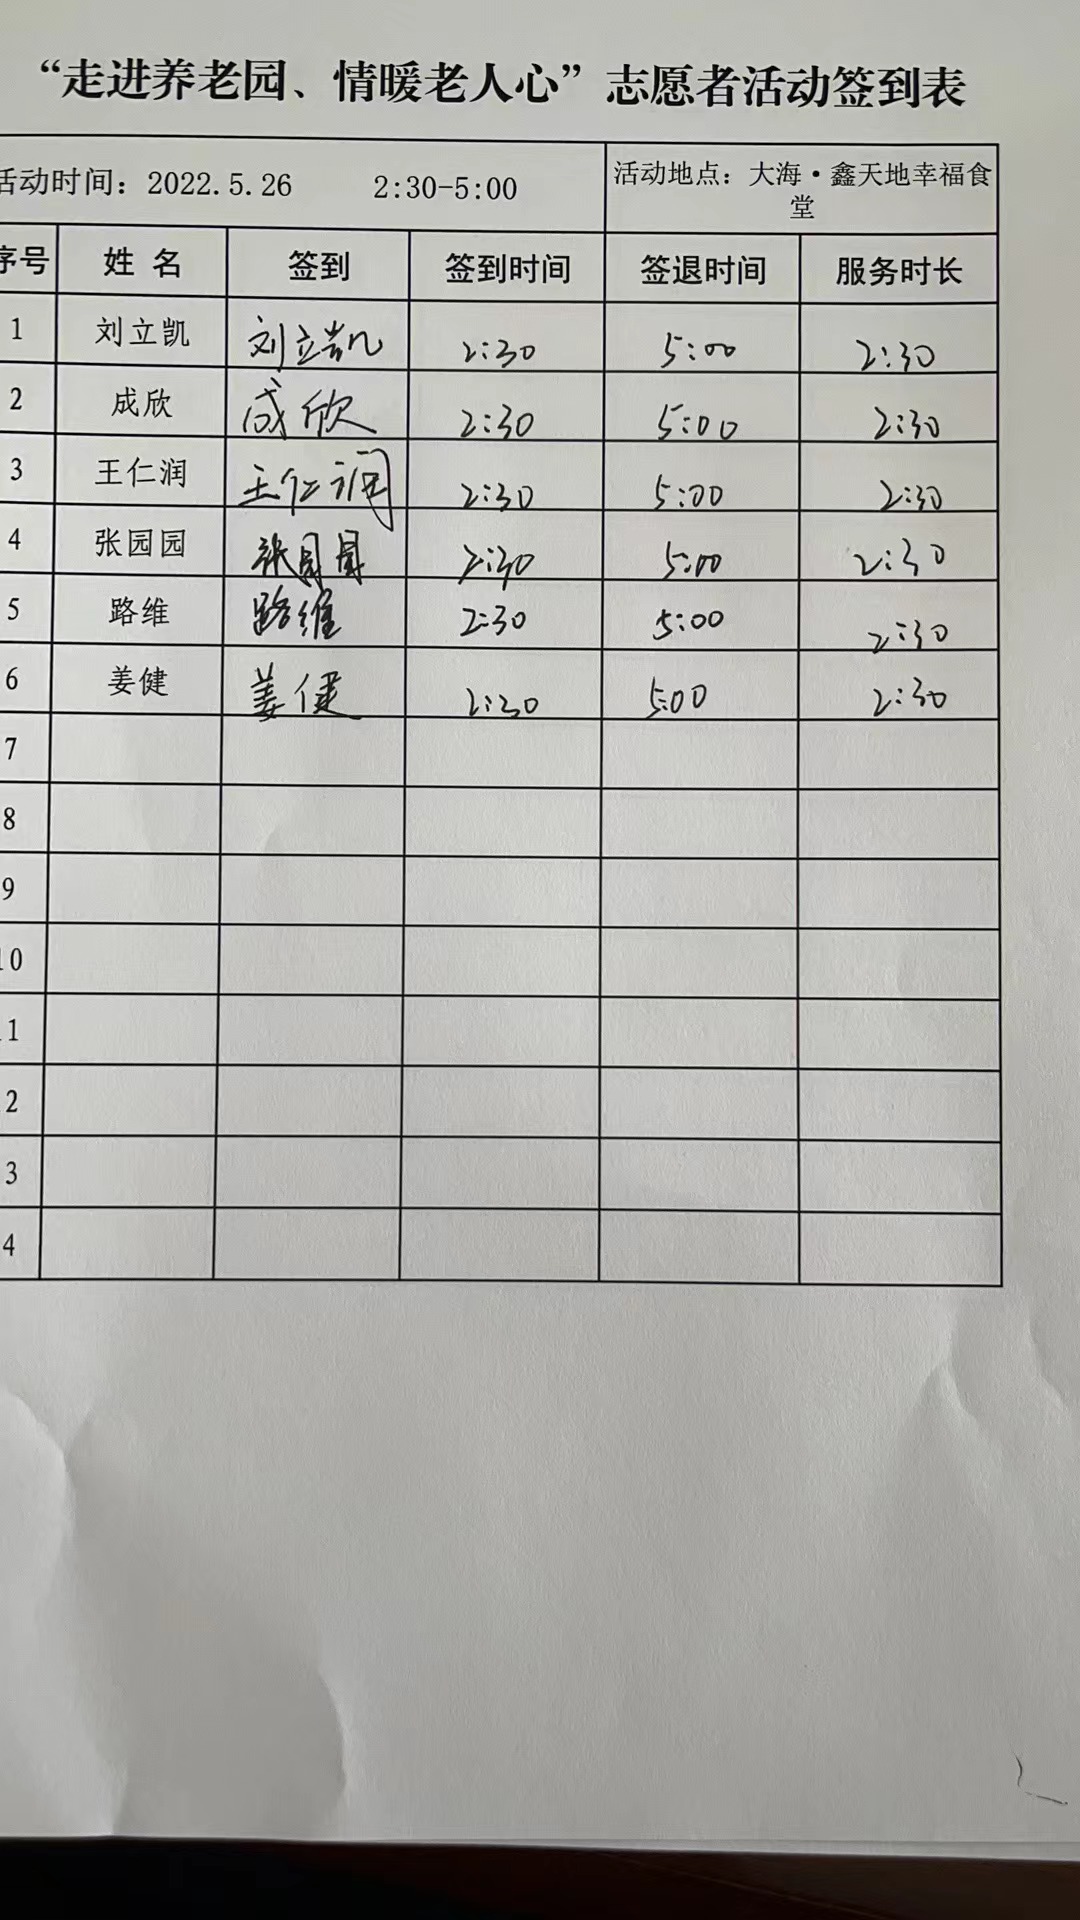 “走进养老园、情暖老人心”志愿者活动签到表
活动时间：2022.5.26 2:30-5:00 活动地点：大海·鑫天地幸福食
堂
序号 姓 名 签到 签到时间 签退时间 服务时长
1 刘立凯 刘立凯 2:30 5:00 2:30
2 成欣 成欣 2:30 5:00 2:30
3 王仁润 王仁润 2:30 5:00 2:30
4 张园园 张园园 2:30 5:00 2:30
5 路维 路维 2:30 5:00 2:30
6 姜健 姜健 2:30 5:00 2:30
7
8
9
10
11
2
3
4